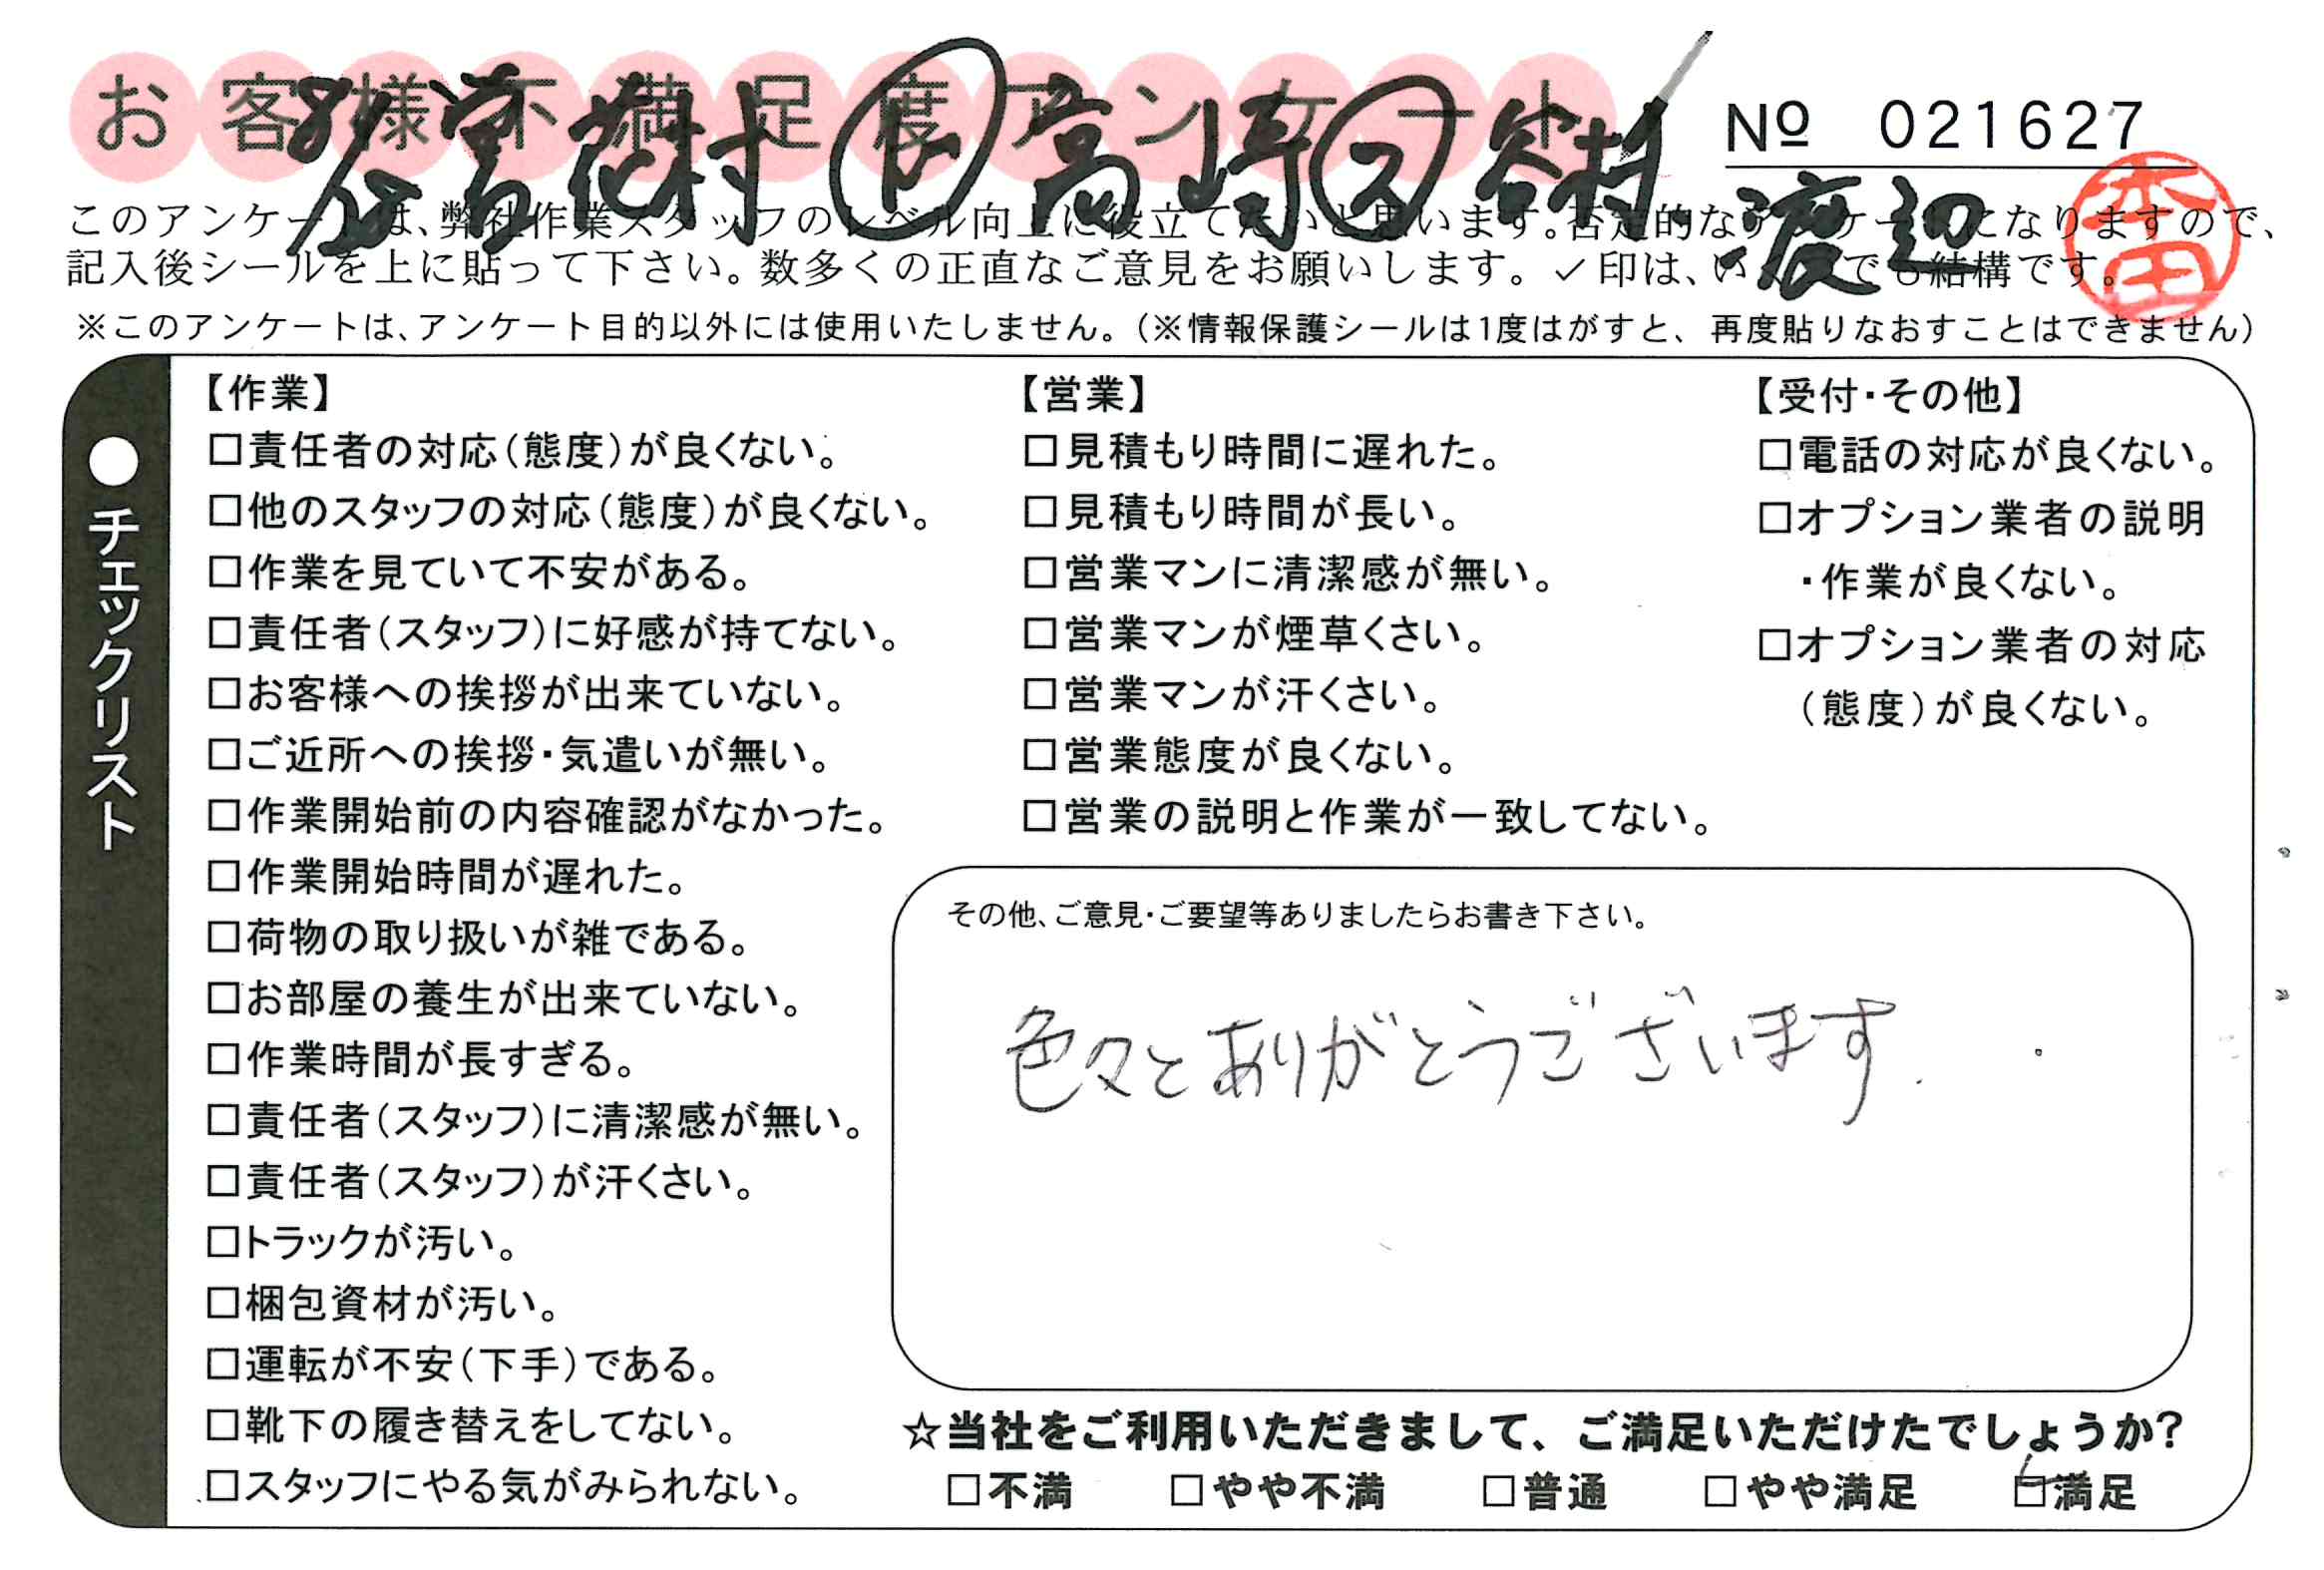 お客様不満足度アンケート
№ 021627
花村 ド 高崎 ス 谷村 渡辺
このアンケートは、弊社作業スタッフのレベル向上に役立てたいと思います。否定的なアンケートになりますので、
記入後シールを上に貼って下さい。数多くの正直なご意見をお願いします。✓印は、いくつでも結構です。
※このアンケートは、アンケート目的以外には使用いたしません。(※情報保護シールは1度はがすと、再度貼りなおすことはできません)
●チェックリスト
【作業】
□責任者の対応(態度)が良くない。
□他のスタッフの対応(態度)が良くない。
□作業を見ていて不安がある。
□責任者(スタッフ)に好感が持てない。
□お客様への挨拶が出来ていない。
□ご近所への挨拶・気遣いが無い。
□作業開始前の内容確認がなかった。
□作業開始時間が遅れた。
□荷物の取り扱いが雑である。
□お部屋の養生が出来ていない。
□作業時間が長すぎる。
□責任者(スタッフ)に清潔感が無い。
□責任者(スタッフ)が汗くさい。
□トラックが汚い。
□梱包資材が汚い。
□運転が不安(下手)である。
□靴下の履き替えをしてない。
□スタッフにやる気がみられない。
【営業】
□見積もり時間に遅れた。
□見積もり時間が長い。
□営業マンに清潔感が無い。
□営業マンが煙草くさい。
□営業マンが汗くさい。
□営業態度が良くない。
□営業の説明と作業が一致してない。
【受付・その他】
□電話の対応が良くない。
□オプション業者の説明
・作業が良くない。
□オプション業者の対応
(態度)が良くない。
その他、ご意見・ご要望等ありましたらお書き下さい。
色々とありがとうございます.
☆当社をご利用いただきまして、ご満足いただけたでしょうか?
□不満 □やや不満 □普通 □やや満足 ☑満足